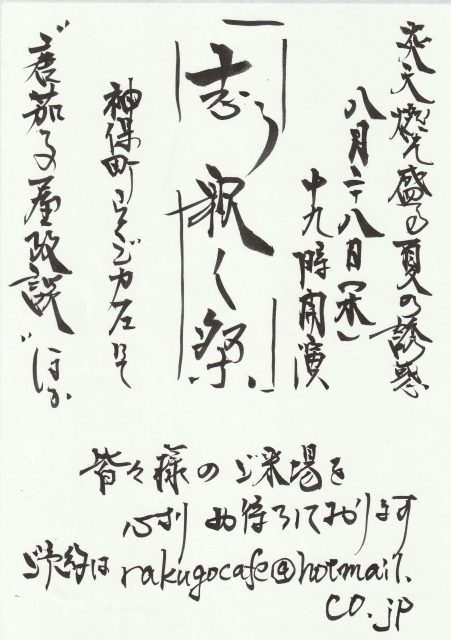 炎天燃え盛る夏の誘惑
八月二八日(木)
十九時開演
志ら
く祭
神保町らくごカフェにて
“唐茄子屋政談”ほか
皆々様のご来場を
心よりお待ちしております
ご予約はrakugocafe@hotmail.
co.jp